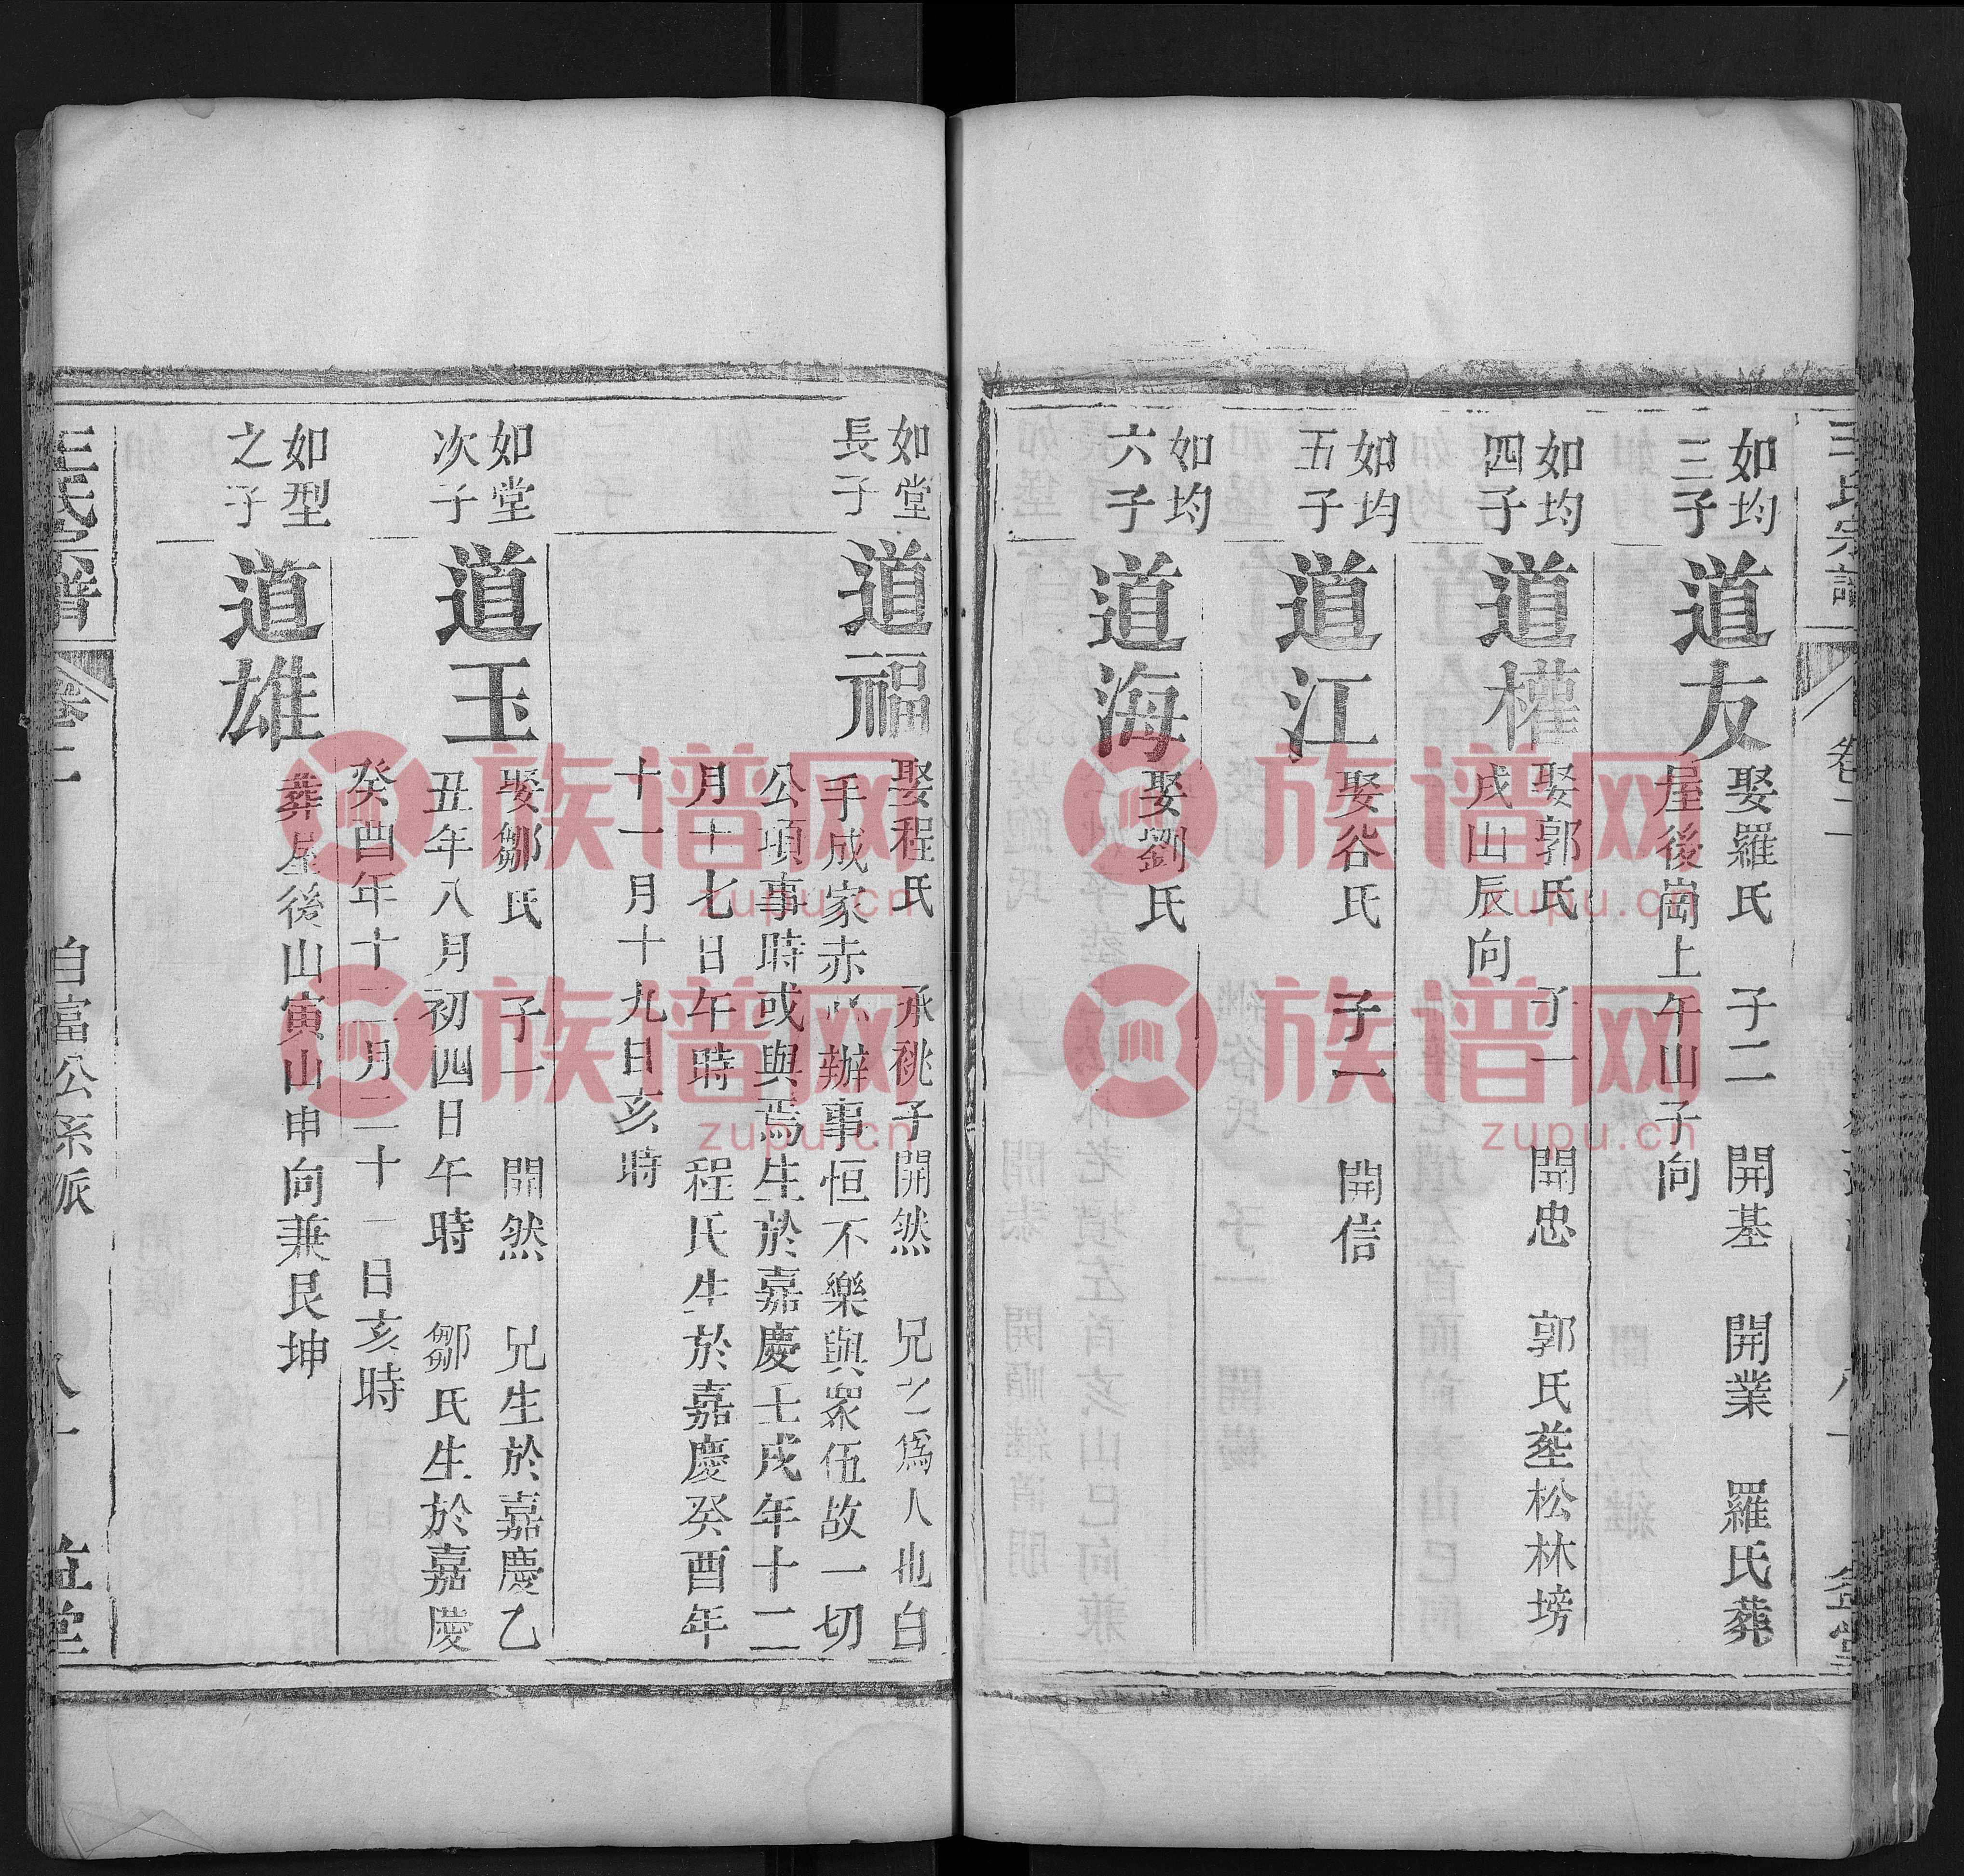 王氏宗譜 卷二 八十 䇐堂
如均
三子
道友
娶羅氏 子二 開基 開業 羅氏葬
屋後崗上午山子向
如均
四子
道權
娶郭氏 子一 開忠 郭氏塟松林塝
戍山辰向
如均
五子
道江
娶谷氏 子一 開信
如均
六子
道海
娶劉氏
如堂
長子
道福
娶程氏 承祧子開然 兄之為人也白
手成家赤心辦事恒不樂與眾伍故一切
公項事時或與焉生於嘉慶壬戌年十二
月十七日午時 程氏生於嘉慶癸酉年
十一月十九日亥時
如堂
次子
道玉
娶鄒氏 子一 開然 兄生於嘉慶乙
丑年八月初四日午時 鄒氏生於嘉慶
癸酉年十二月二十一日亥時
如型
之子
道雄
葬屋後山寅山申向兼艮坤
王氏宗譜 卷二 自富公系派 八十 堂
族谱网
zupu.cn
族谱网
zupu.cn
族谱网
zupu.cn
族谱网
zupu.cn